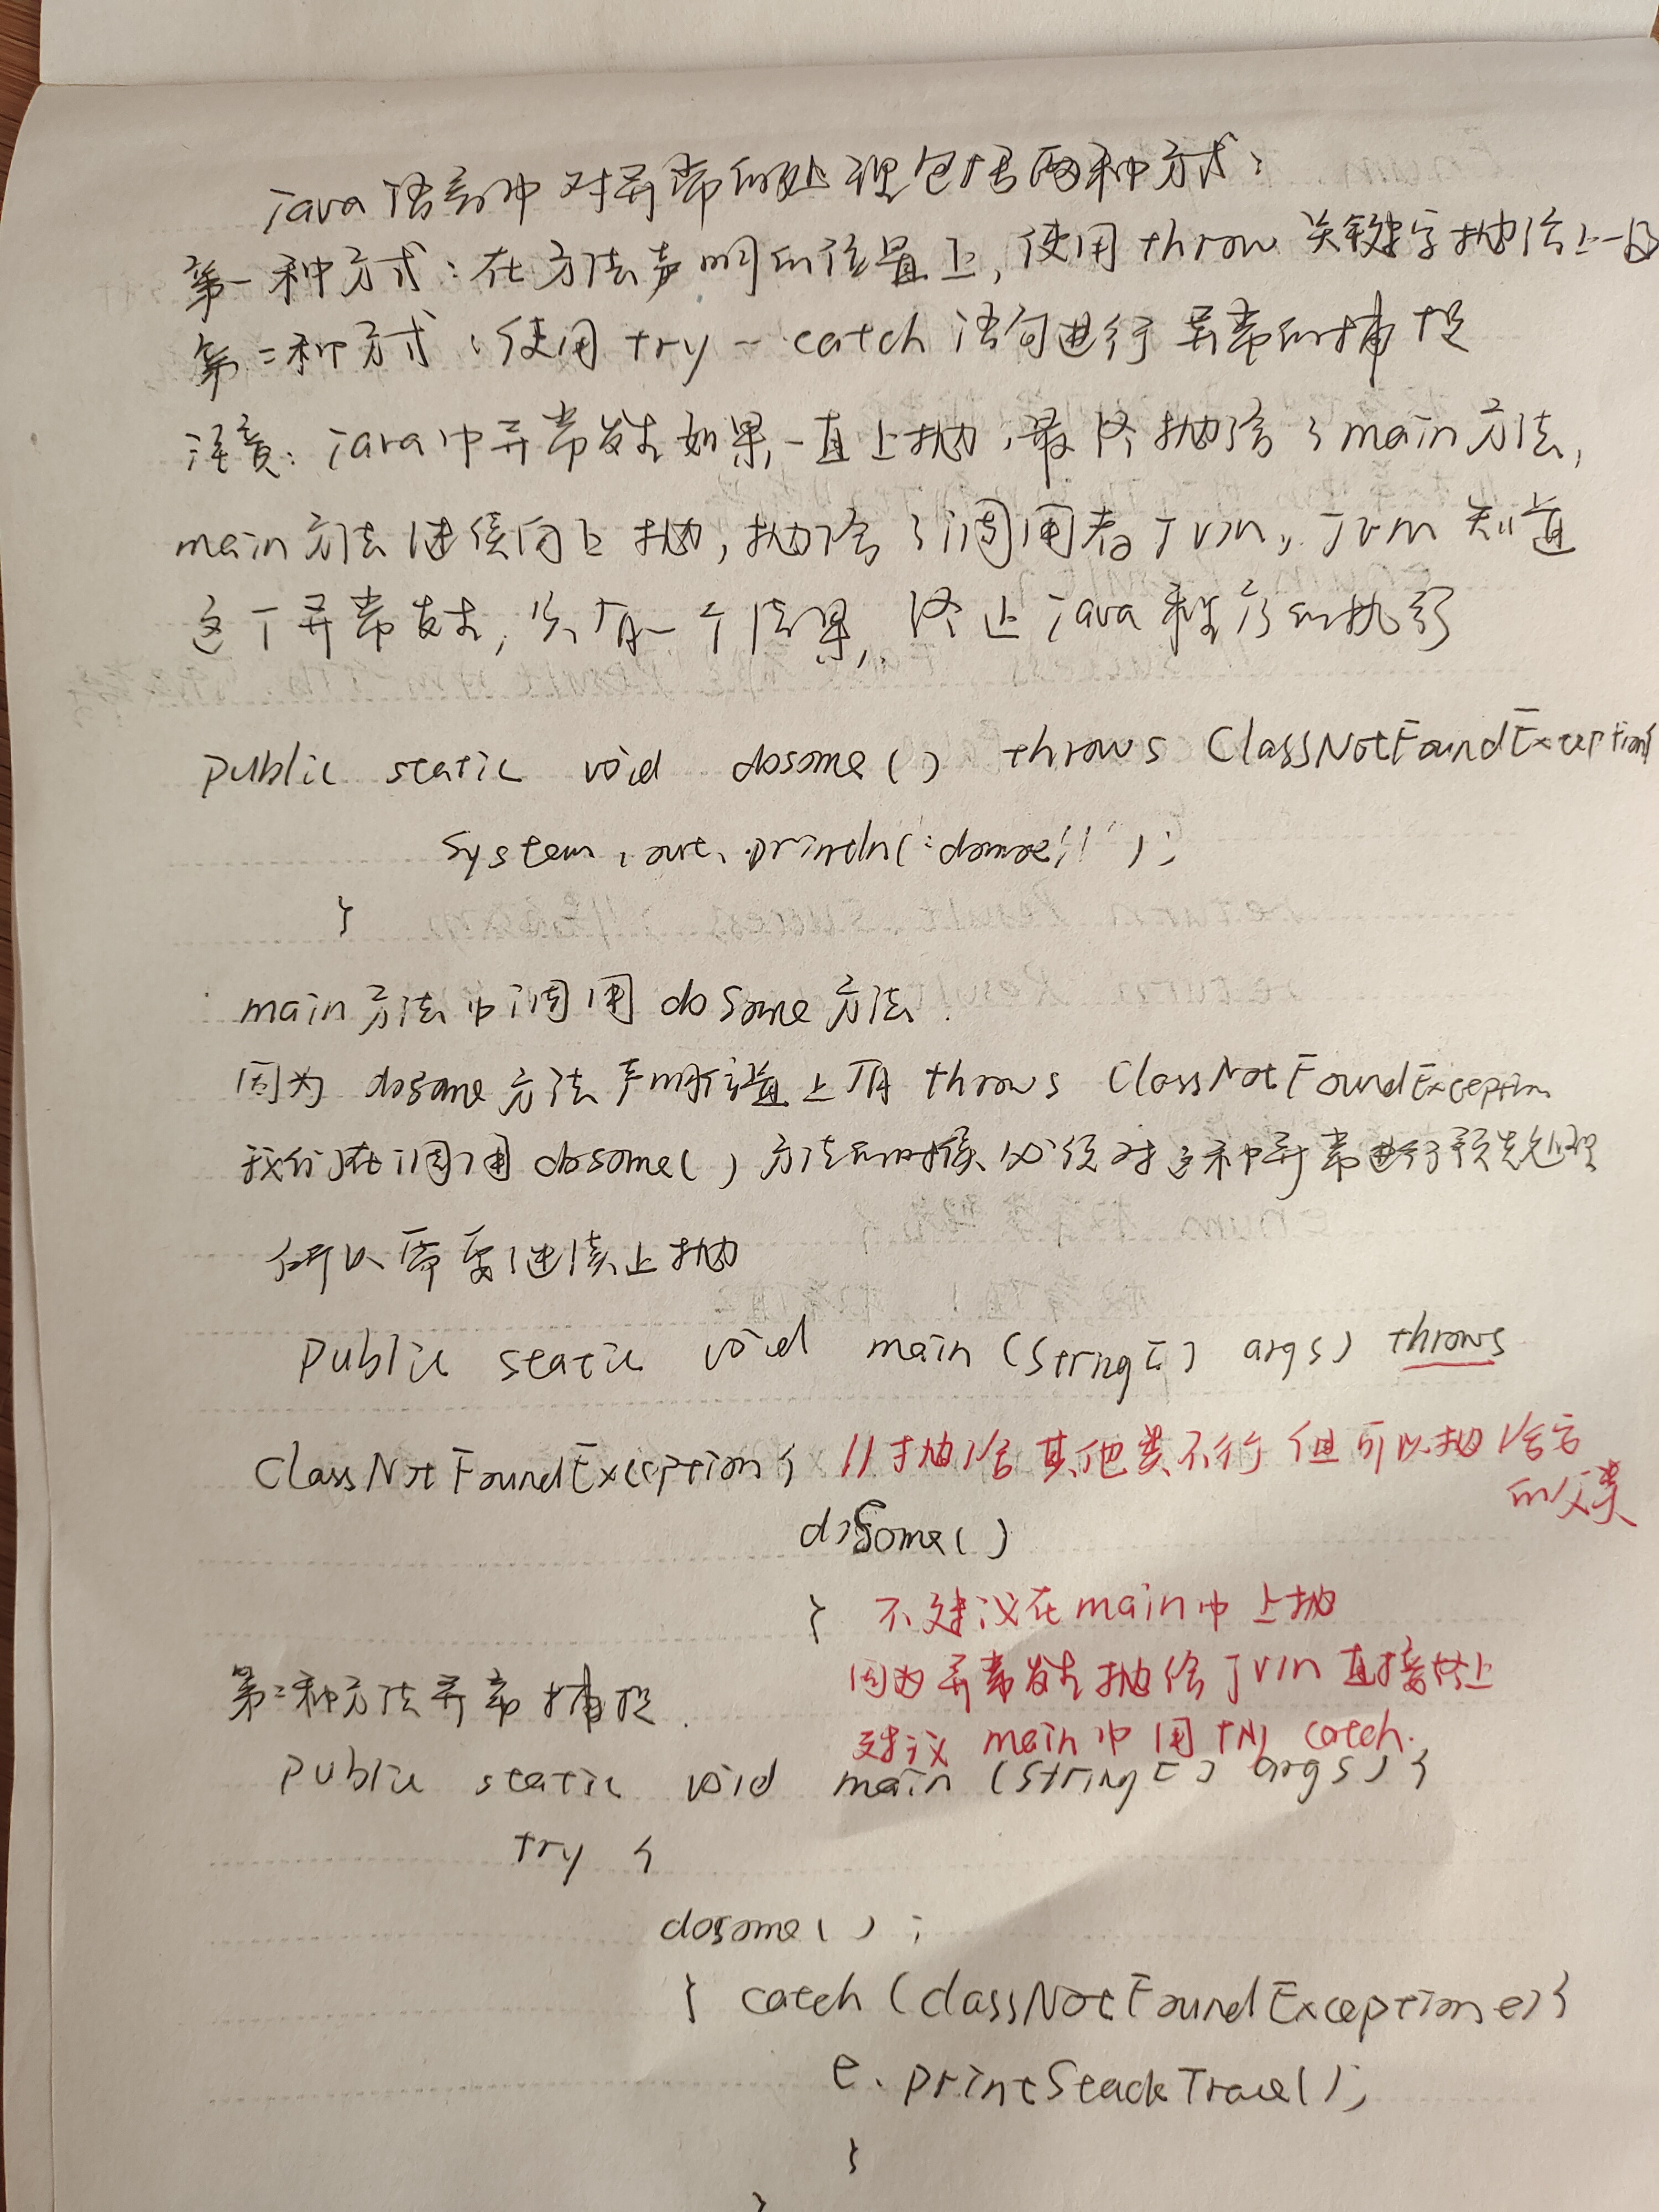 java语言中对异常的处理包括两种方式:
第一种方式:在方法声明的位置上,使用throw关键字抛给上一级
第二种方式:使用try--catch语句进行异常的捕捉
注意:java中异常发生如果一直上抛,最终抛给了main方法,
main方法继续向上抛,抛给了调用者JVM,JVM知道
这个异常发生,只有一个结果,终止java程序的执行
public static void dosome() throws ClassNotFoundException{
System.out.println(
}
main方法中调用doSome方法.
因为dosome方法声明位置上有throws ClassNotFoundException
我们在调用dosome()方法的时候必须对这种异常进行预先处理
所以需要继续上抛
public static void main(String[] args) throws
ClassNotFoundException{ //抛给其他类不行但可以抛给它
的父类
doSome()
} 不建议在main中上抛
因为异常发生抛给JVM直接终止
建议main中用try catch.
第二种方法异常捕捉.
public static void main(String[] args){
try {
dosome();
} catch(classNotFoundException e){
e.printStackTrace();
}
}